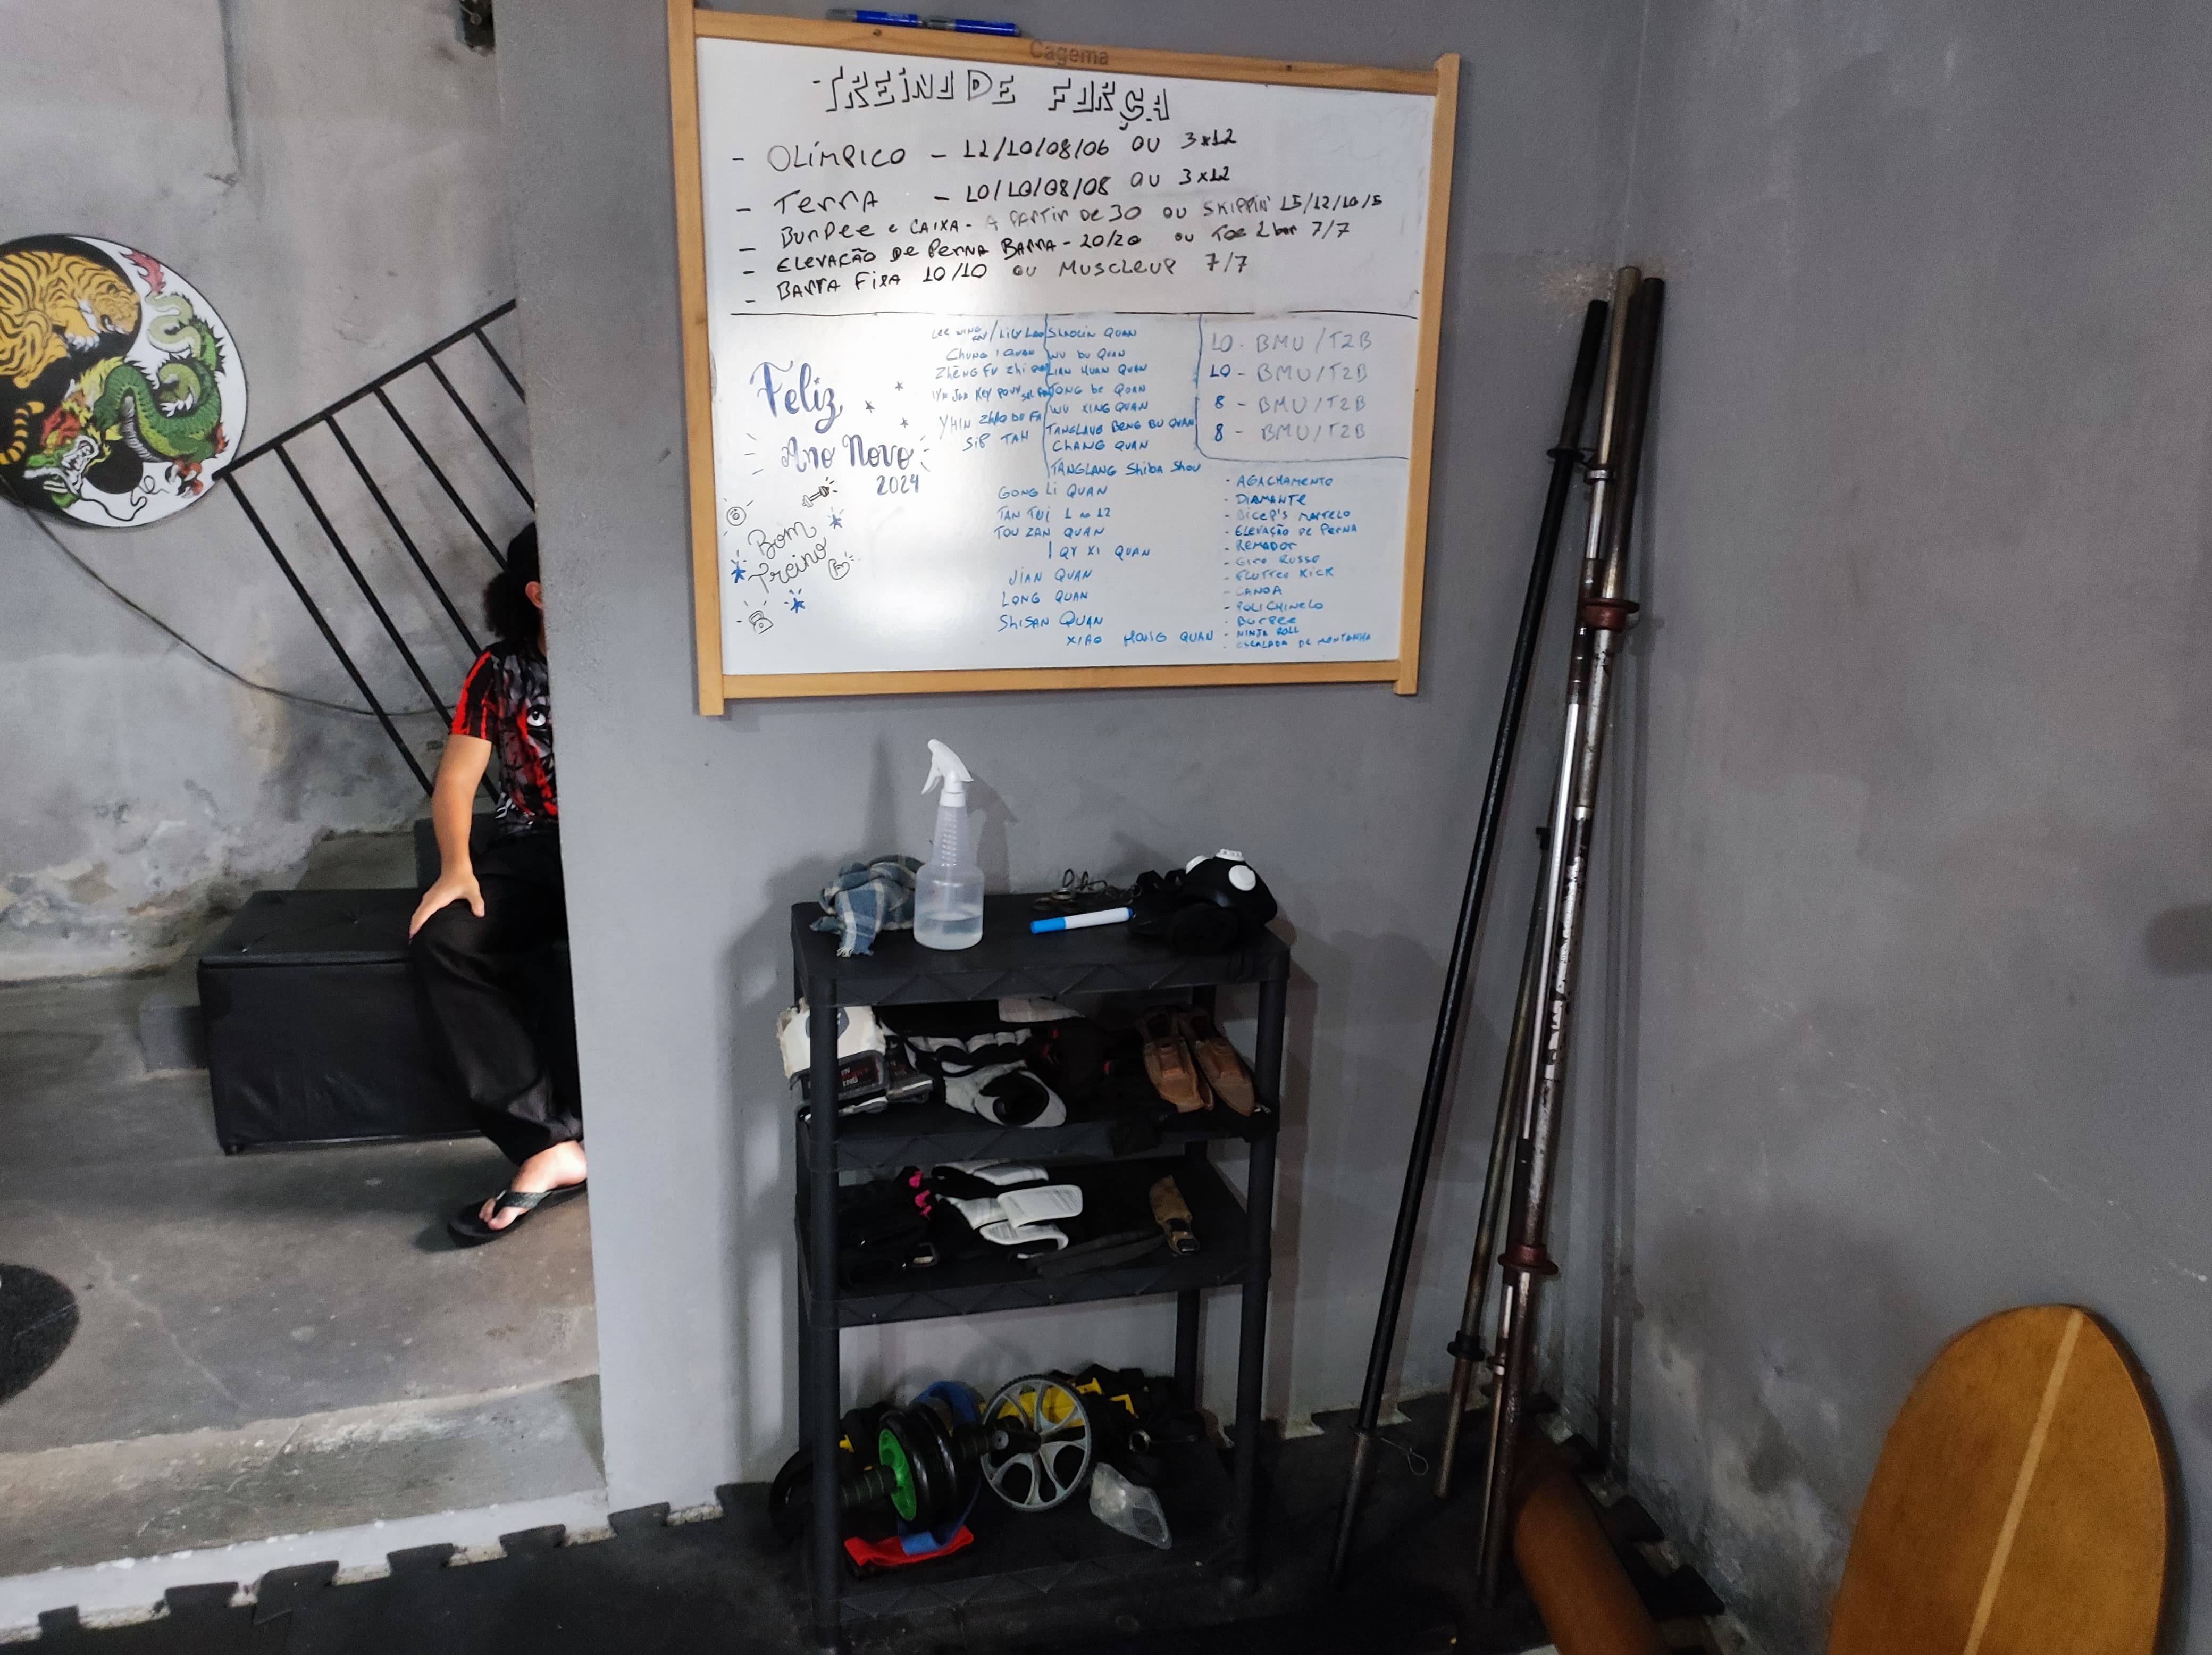 Cagema
TREINO DE FORÇA
- OLÍMPICO - 12/10/08/06 OU 3x12
- TERRA - 10/10/08/08 OU 3x12
- BURPEE e CAIXA - A PARTIR DE 30 OU SKIPPIN' 15/12/10/5
- ELEVAÇÃO DE PERNA BARRA - 20/20 OU TOE 2 bar 7/7
- BARRA FIXA 10/10 OU MUSCLEUP 7/7
Feliz
Ano Novo
2024
Bom
Treino
CHUNG I QUAN
ZHÉNG FU ZHI
SIP TAM
SHAOLIN QUAN
WU BU QUAN
LIAN HUAN QUAN
TONG BE QUAN
WU XING QUAN
TANGLANG BENG BU QUAN
CHANG QUAN
TANGLANG SHIBA SHOU
GONG LI QUAN
TAN TUI 1 ao 12
TOU ZAN QUAN
QY XI QUAN
JIAN QUAN
LONG QUAN
SHISAN QUAN
XIAO HONG QUAN
10 - BMU/T2B
10 - BMU/T2B
8 - BMU/T2B
8 - BMU/T2B
- AGACHAMENTO
- DIAMANTE
- BICEP'S MARTELO
- ELEVAÇÃO DE PERNA
- REMADOR
- GIRO RUSSO
- FLUTTER KICK
- CANOA
- POLICHINELO
- BURPEE
- NINJA ROLL
- ESCALADA DE MONTANHA